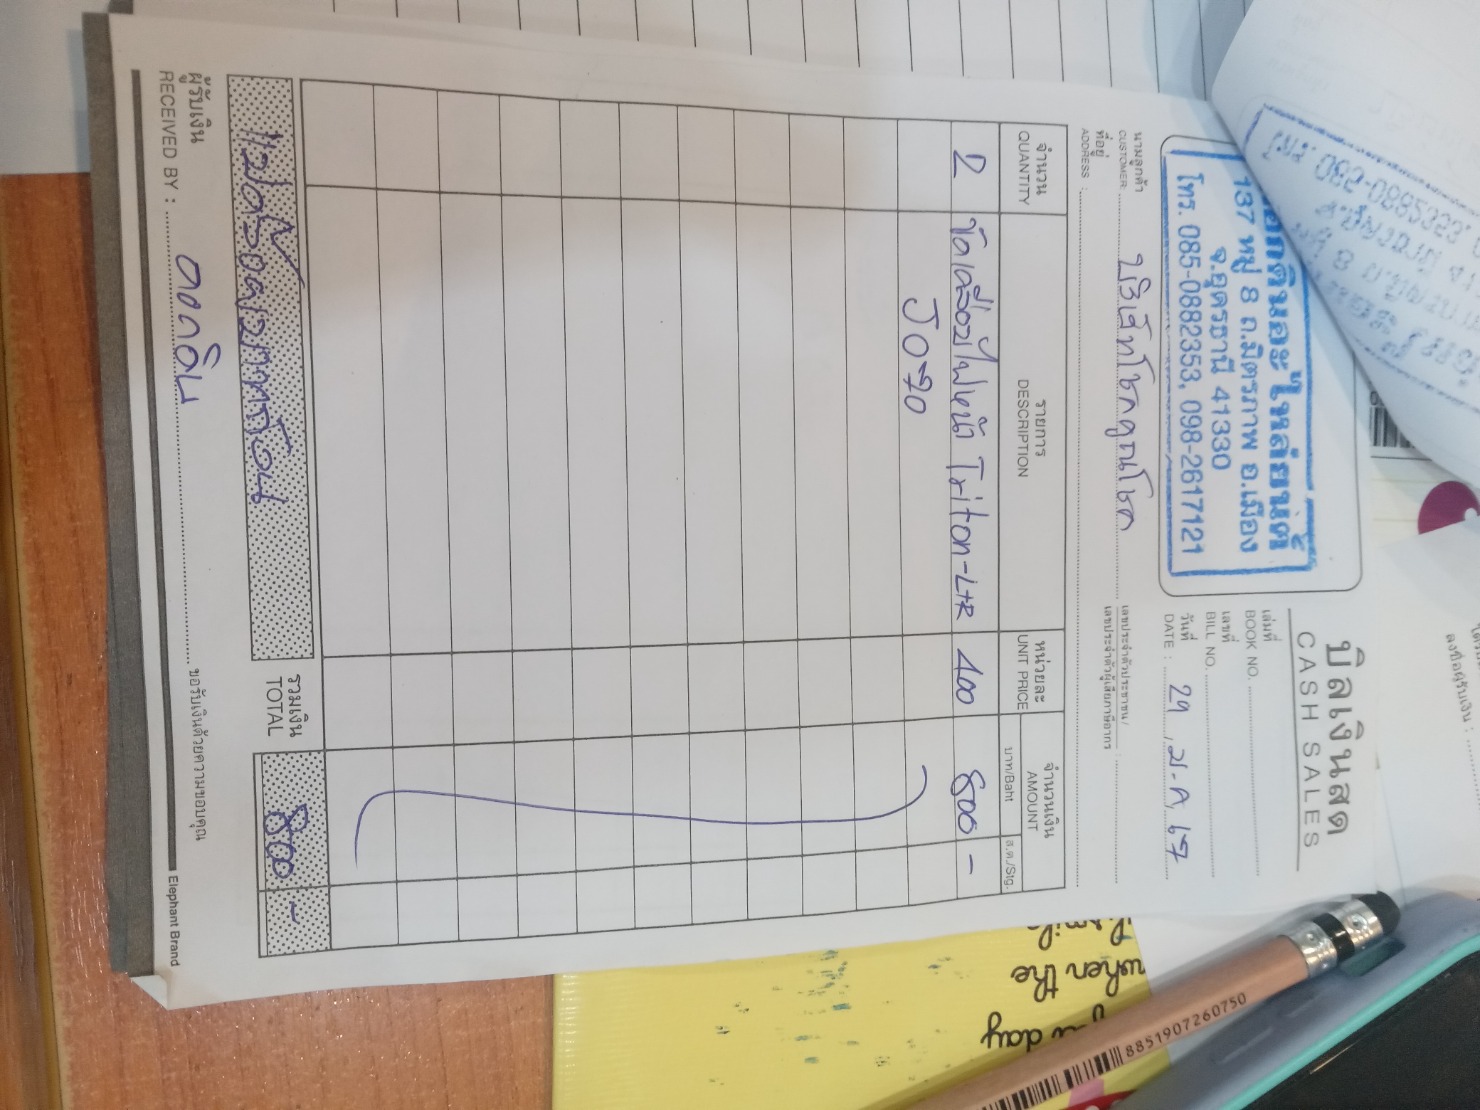 บิลเงินสด
CASH SALES
เล่มที่
BOOK NO.
เลขที่
BILL NO.
วันที่
DATE : 29 ม.ค. 67
อกดินอะไหล่ยนต์
137 หมู่ 8 ถ.มิตรภาพ อ.เมือง
จ.อุดรธานี 41330
โทร. 085-0882353, 098-2617121
นามลูกค้า
CUSTOMER: บริษัทโชคคูณโชค
เลขประจำตัวประชาชน/
เลขประจำตัวผู้เสียภาษีอากร
ที่อยู่
ADDRESS :
จำนวน รายการ หน่วยละ จำนวนเงิน
QUANTITY DESCRIPTION UNIT PRICE AMOUNT
บาท/Baht ส.ต./Stg.
2 ไฟหน้า Triton-L+R 400 800 -
JO-70
รวมเงิน
TOTAL 800 -
แปดร้อยบาทถ้วน
ผู้รับเงิน
RECEIVED BY : ดอกดิน
ขอรับเงินด้วยความขอบคุณ
Elephant Brand
8851907260750
when the
day
ลงชื่อผู้รับเงิน :